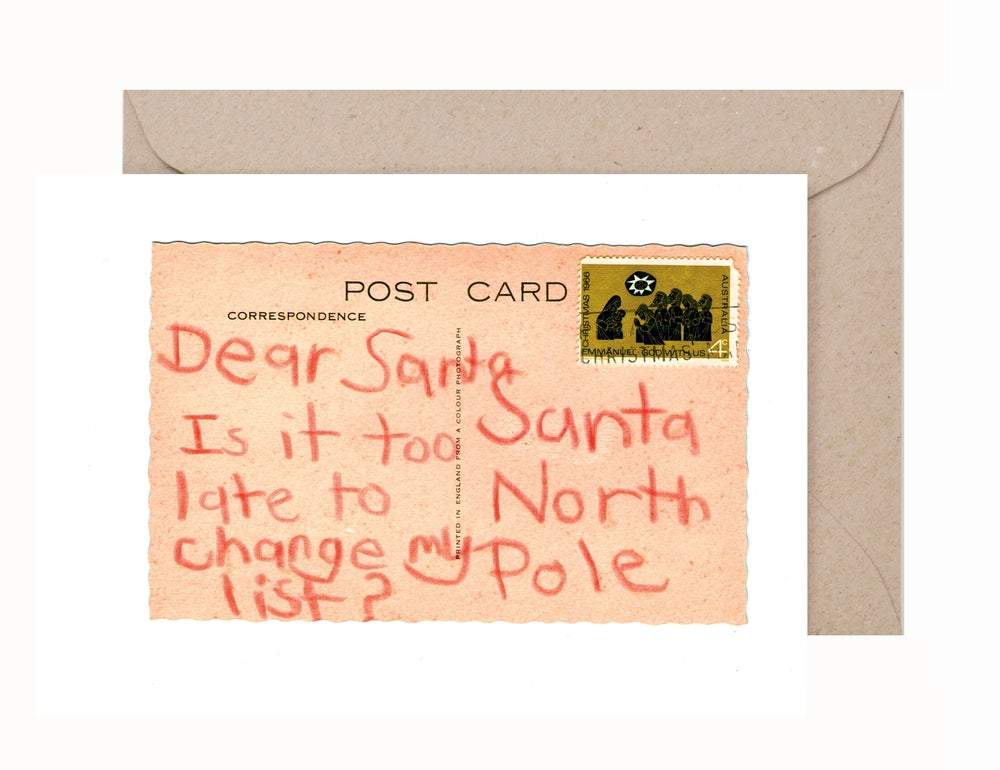 POST CARD
CORRESPONDENCE
Dear Santa
Is it too
late to
change my
list?
PRINTED IN ENGLAND FROM A COLOUR PHOTOGRAPH
CHRISTMAS 1966
AUSTRALIA
EMMANUEL GOD WITH US
4c
CHRISTMAS
Santa
North
Pole